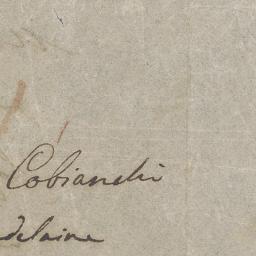 Cobianchi
delaine